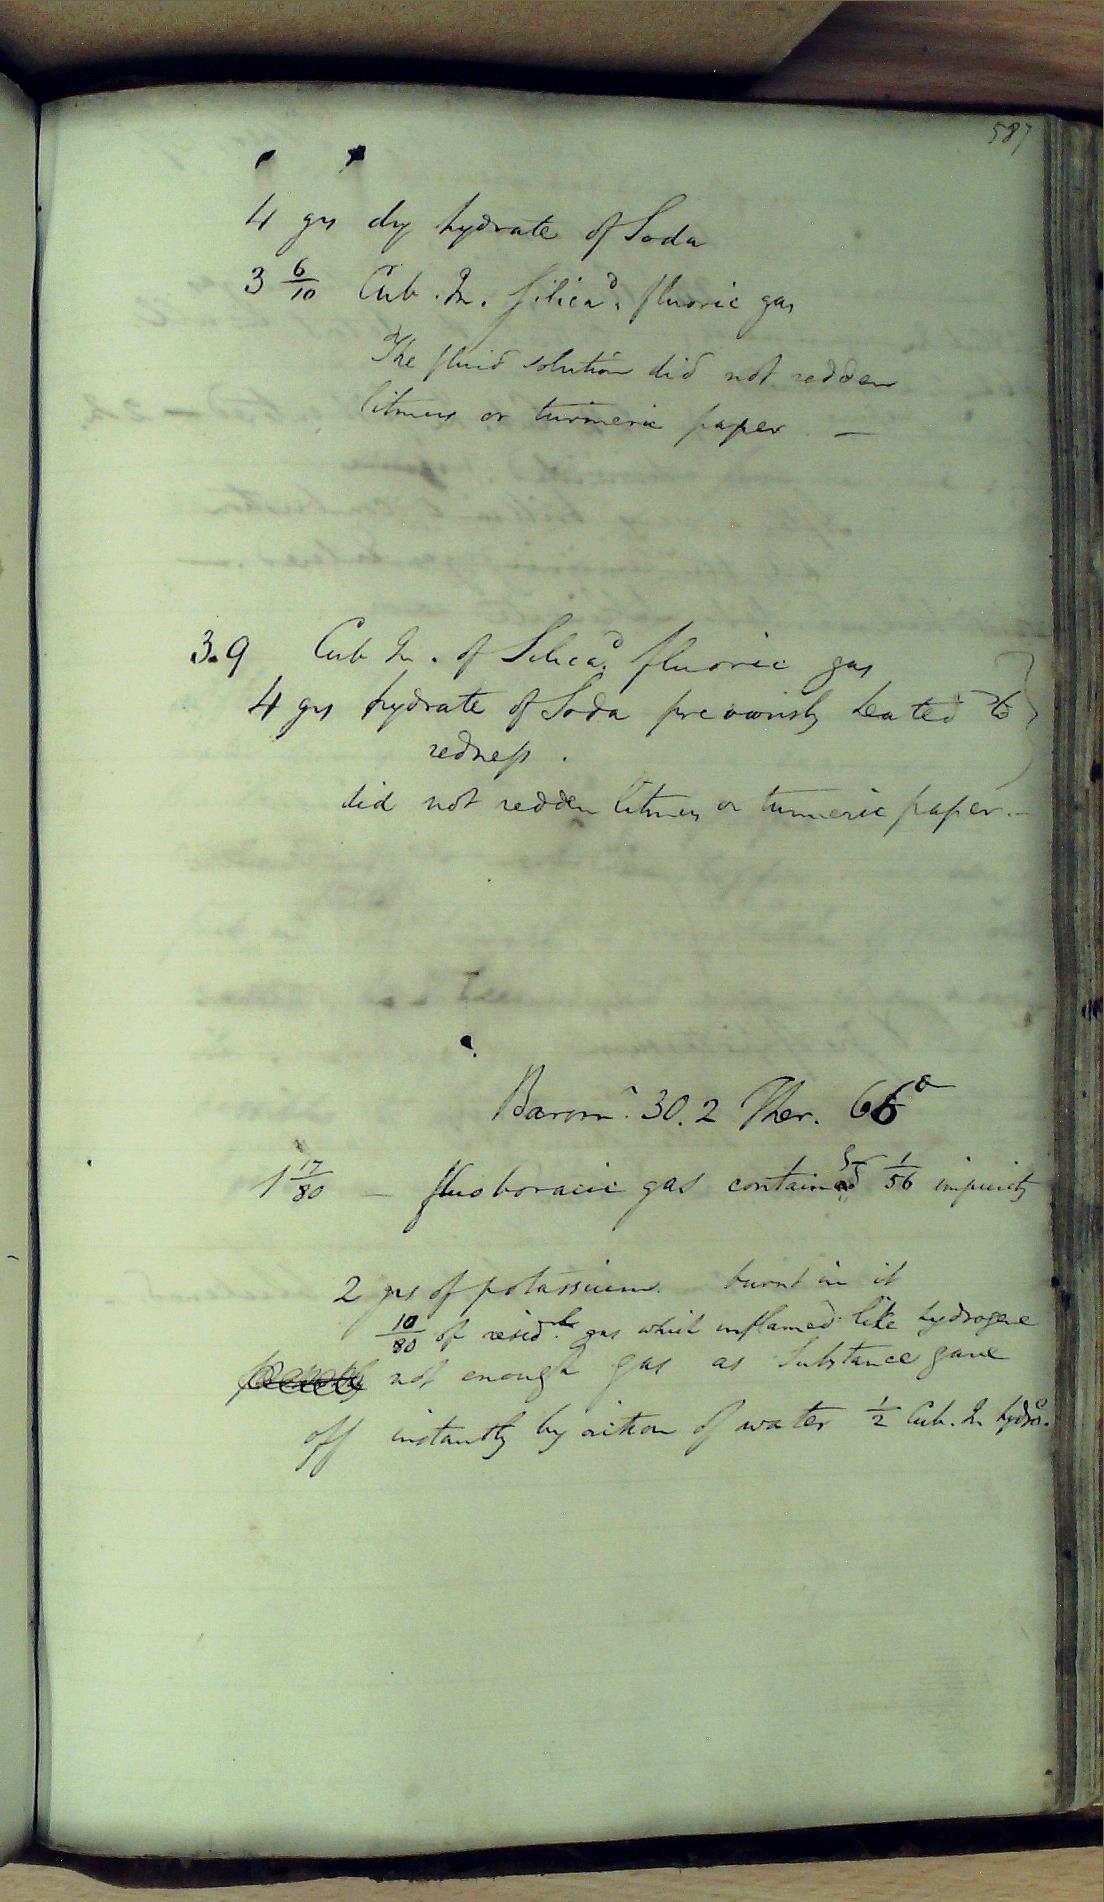 587
4 grs dry hydrate of Soda
3 6/10 Cub. In. Silicad. fluoric gas
The fluid solution did not redden
litmus or turmeric paper. —
3.9 Cub In. of Silicad. fluoric gas
4 grs hydrate of Soda previously heated to
redness.
did not redden litmus or turmeric paper. —
Baromr. 30.2 Ther. 66°
1 17/80 — fluoboracic gas contained 1/56 impurity
2 grs of potassium burnt in it
10/80 of residl. gas which inflamed like hydrogene
not enough gas as Substance gave
off instantly by action of water 1/2 Cub. In hydro.